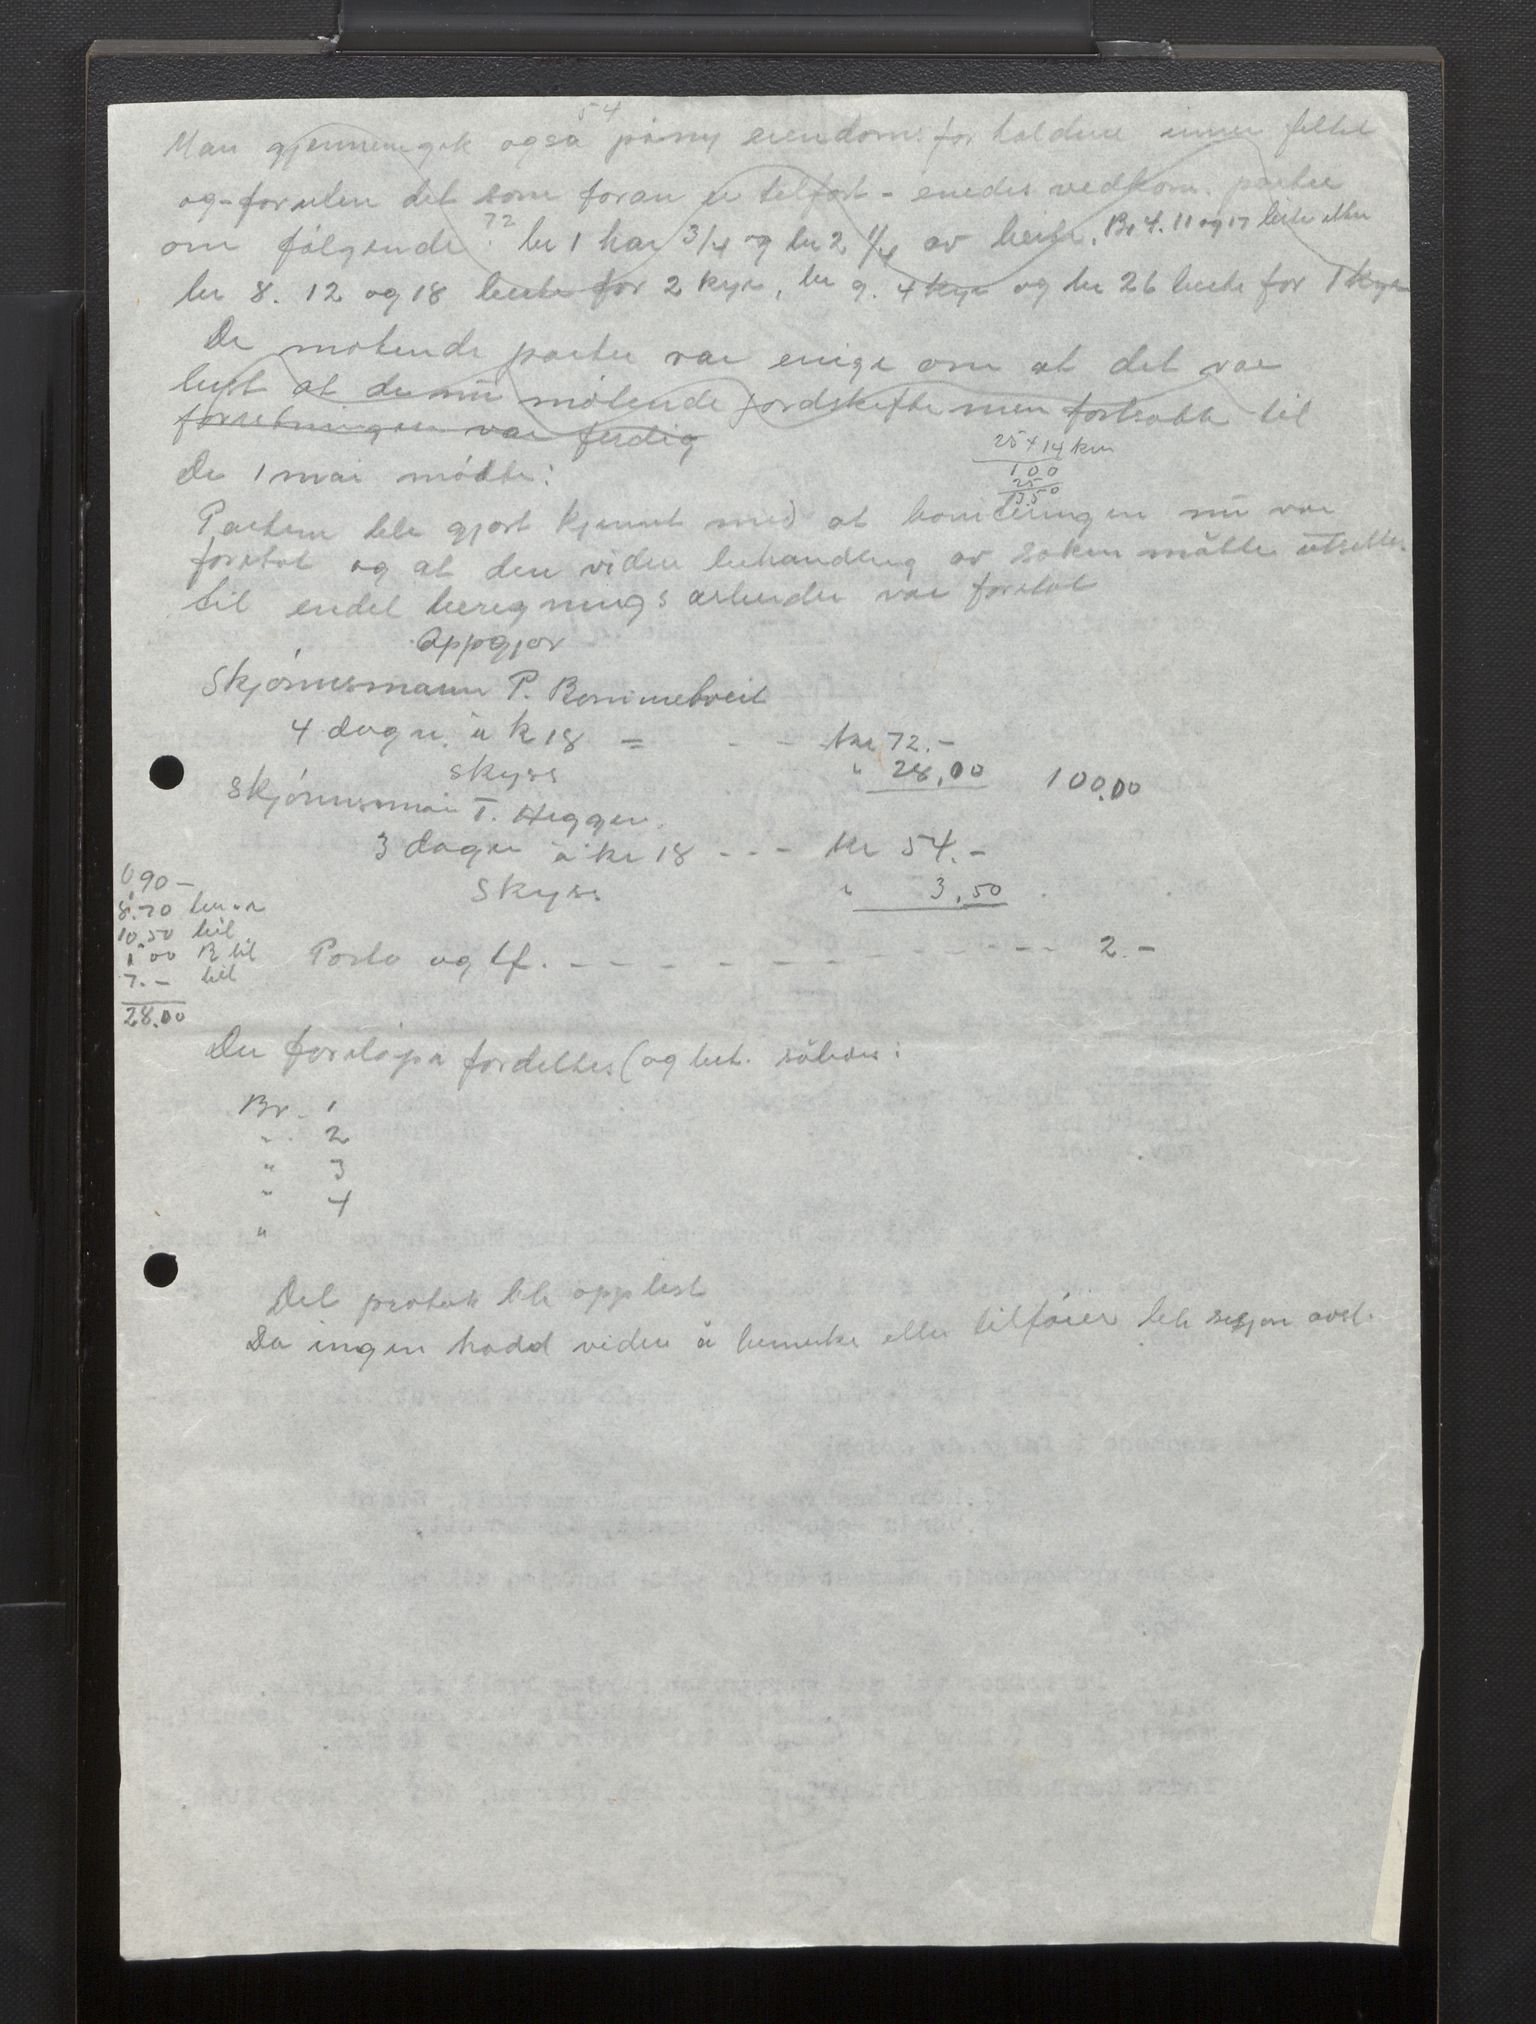 54
Man gjennemgik også påny eiendomsforholdene innen feltet
og - foruten det som foran er tilført - enedes vedkom. parter
om følgende: br 1 har 3/4 og br 2 1/4 av beite. Br 4. 11 og 17 beite etter
72
br 8. 12 og 18 beite for 2 kyr, br 9. 4 kyr og br 26 beite for 1 kyr
De møtende parter var enige om at det var
best at de nu møtende jordskiftemenn fortsatte til
forretningen var ferdig
25 x 14 km
100
25
3.50
De 1 mai møtte:
Partene ble gjort kjennt med at boniteringen nu var
foretat og at den videre behandling av saken måtte utsettes
til endel beregnings arbeider var foretat
Oppgjør
Skjønnsmann P. Rommetveit
4 dager à k 18 = - - - kr 72.-
Skyss " 28,00 100,00
Skjønnsman T. Heggen.
3 dager à kr 18 - - - kr 54.-
Skyss " 3,50
90 -
8.70
10.50 bil
1.00 bil
7.- bil
28.00
Porto og tf. - - - - - - - - - - 2.-
De foreløpa fordeltes (og bet. således:
Br. 1
" 2
" 3
" 4
"
Det protok ble opplest
Da ingen hadd videre å bemerke eller tilføie ble sesjon avsl.